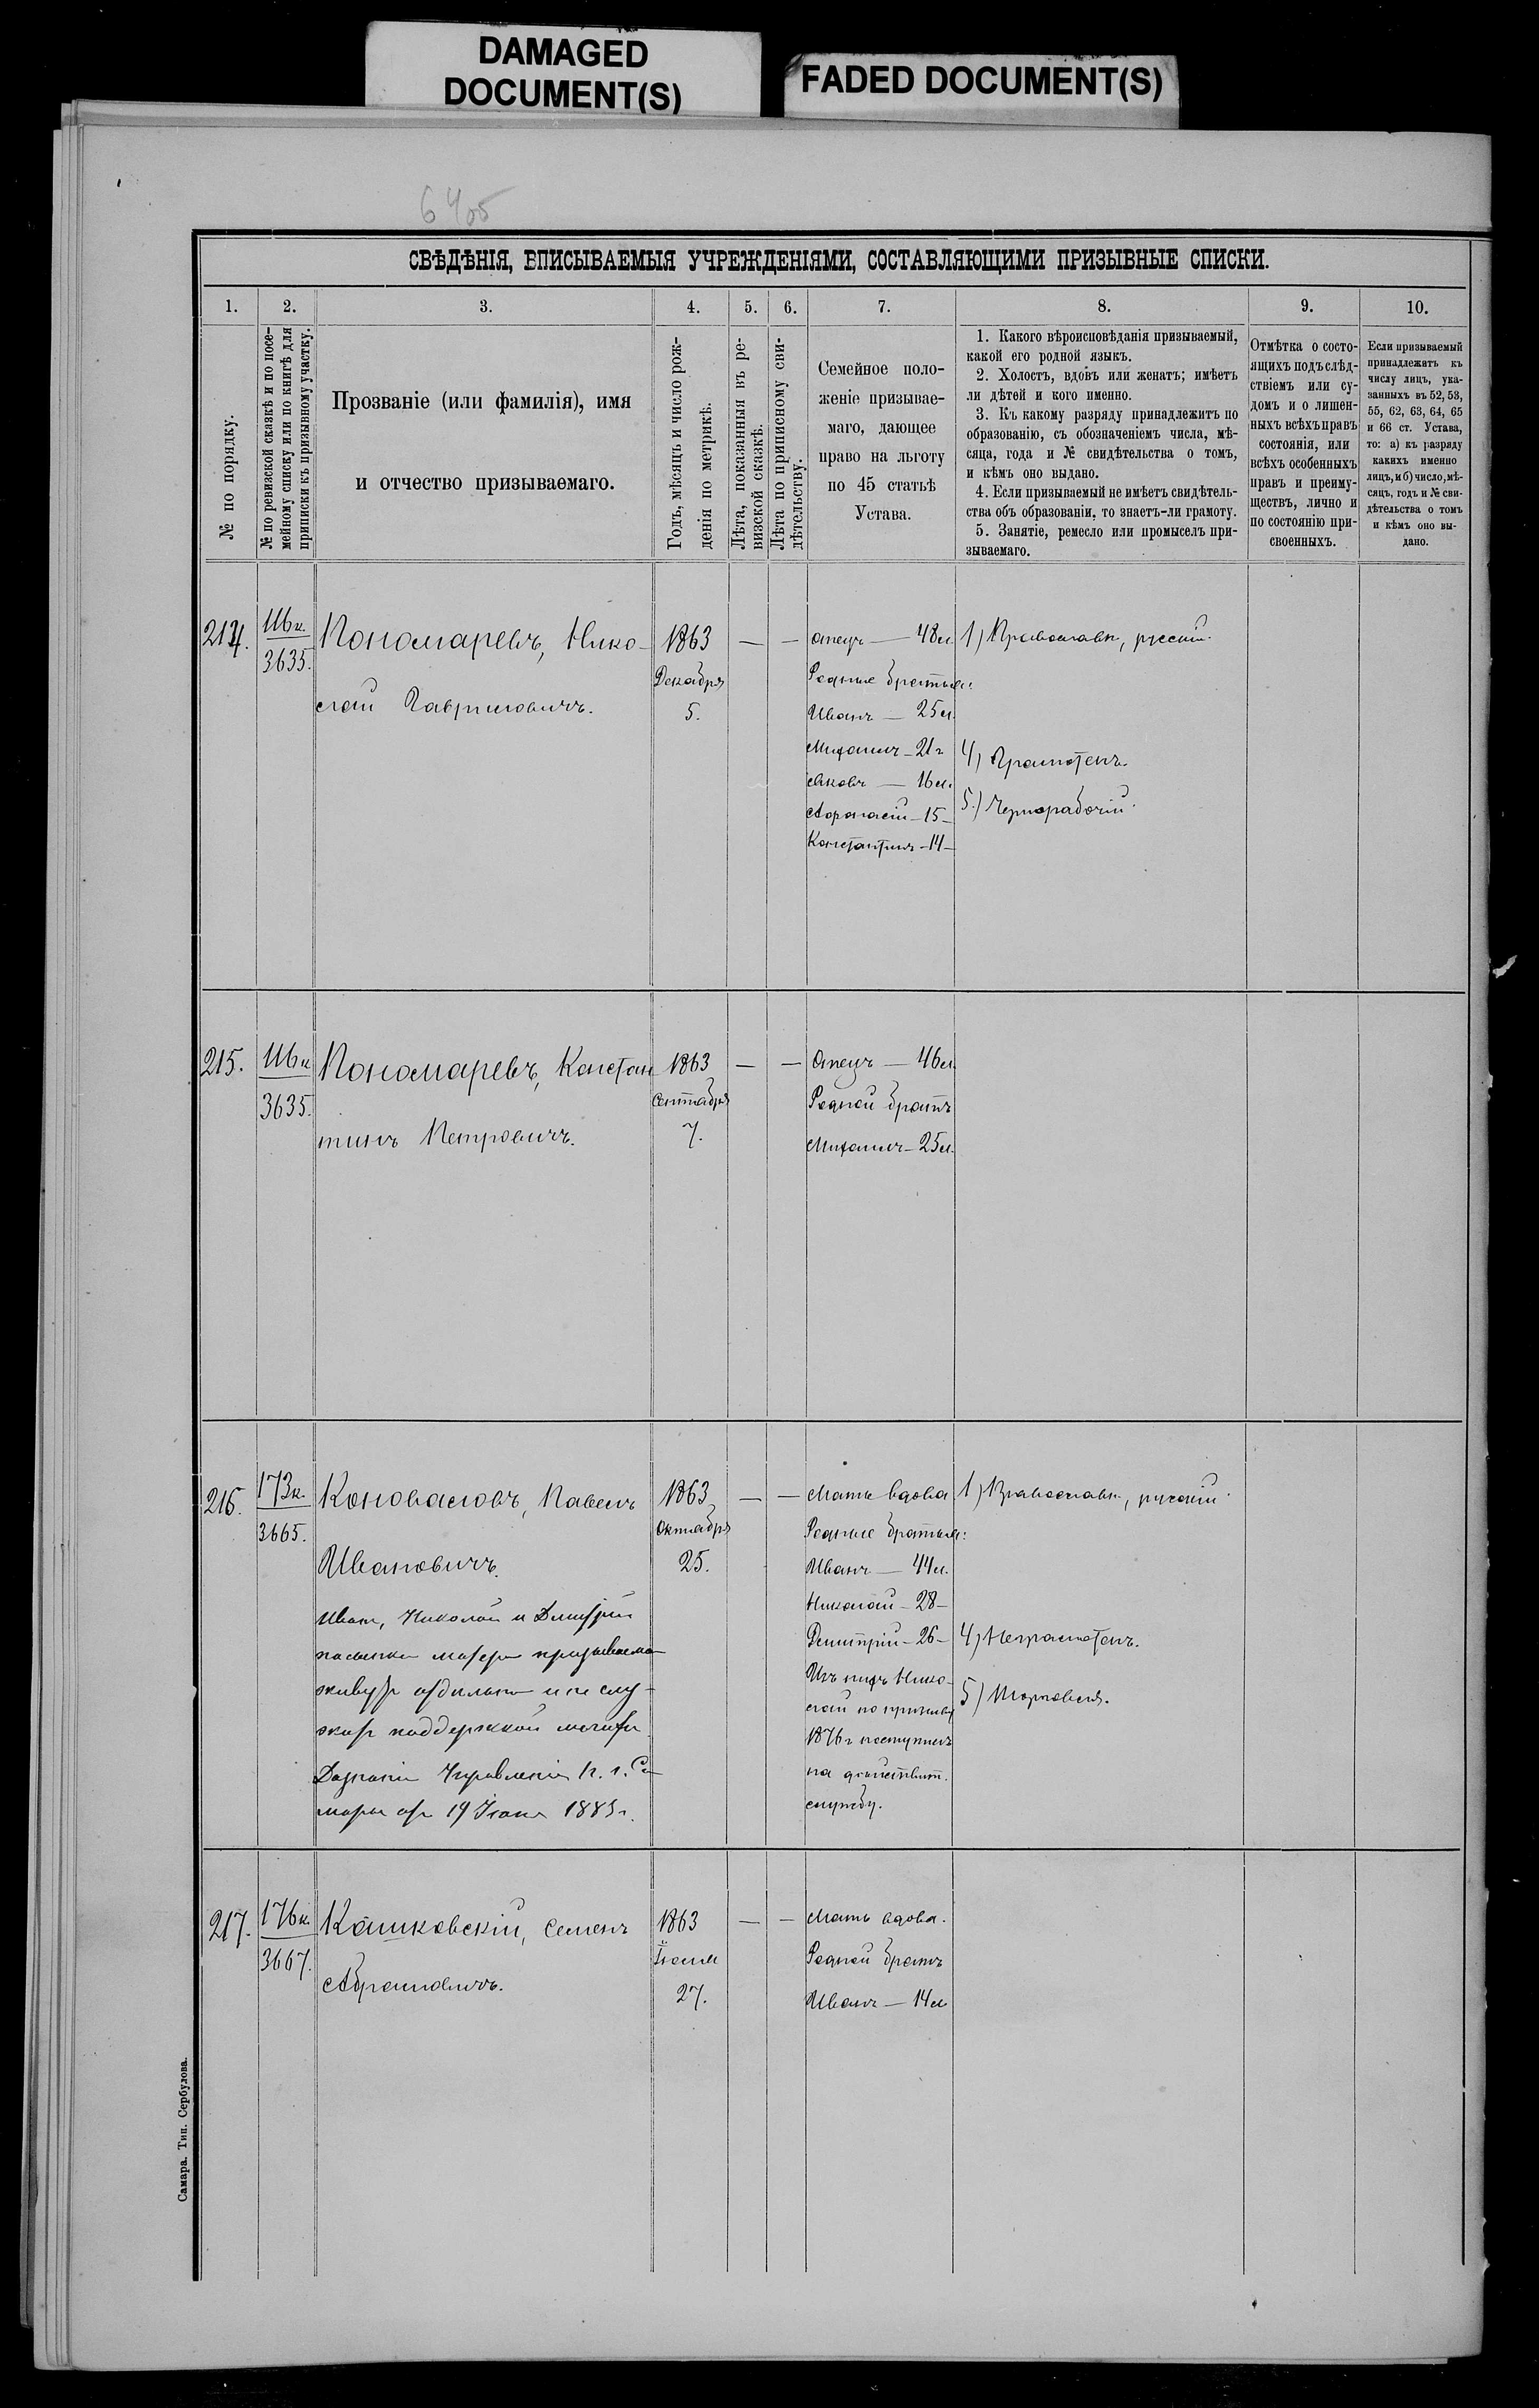 DAMAGED
DOCUMENT(S)
FADED DOCUMENT(S)
6405
СВѢДѢНІЯ, ВПИСЫВАЕМЫЯ УЧРЕЖДЕНІЯМИ, СОСТАВЛЯЮЩИМИ ПРИЗЫВНЫЕ СПИСКИ.
1.
2.
3.
4.
5.
6.
7.
8.
9.
10.
№ по порядку.
№ по ревизской сказкѣ и по посе-
мейному списку или по книгѣ для
приписки къ призывному участку.
Прозваніе (или фамилія), имя
и отчество призываемаго.
Годъ, мѣсяцъ и число рож-
денія по метрикѣ.
Лѣта, показанныя въ ре-
визской сказкѣ.
Лѣта по приписному сви-
дѣтельству.
Семейное поло-
женіе призывае-
маго, дающее
право на льготу
по 45 статьѣ
Устава.
1. Какого вѣроисповѣданія призываемый,
какой его родной языкъ.
2. Холостъ, вдовъ или женатъ; имѣетъ
ли дѣтей и кого именно.
3. Къ какому разряду принадлежитъ по
образованію, съ обозначеніемъ числа, мѣ-
сяца, года и № свидѣтельства о томъ,
и кѣмъ оно выдано.
4. Если призываемый не имѣетъ свидѣтель-
ства объ образованіи, то знаетъ-ли грамоту.
5. Занятіе, ремесло или промыселъ при-
зываемаго.
Отмѣтка о состо-
ящихъ подъ слѣд-
ствіемъ или су-
домъ и о лишен-
ныхъ всѣхъ правъ
состоянія, или
всѣхъ особенныхъ
правъ и преиму-
ществъ, лично и
по состоянію при-
своенныхъ.
Если призываемый
принадлежитъ къ
числу лицъ, ука-
занныхъ въ 52, 53,
55, 62, 63, 64, 65
и 66 ст. Устава,
то: а) къ разряду
какихъ именно
лицъ, и б) число, мѣ-
сяцъ, годъ и № сви-
дѣтельства о томъ
и кѣмъ оно вы-
дано.
214.
116к.
3635.
Пономаревъ, Нико-
лай Гавриловичъ.
1863
Декабря
5.
— —
Отецъ — 48 л
Родные братья:
Иванъ — 25 л.
Михаилъ — 21 г
Яковъ — 16 л.
Афонасій — 15 —
Константинъ — 14 —
1) Православн, русскій.
4) Грамотенъ.
5) Чернорабочій.
215.
116к
3635.
Пономаревъ, Констан
тинъ Петровичъ.
1863
Сентября
7.
— —
Отецъ — 46 л
Родной братъ
Михаилъ — 25 л.
216.
173к.
3665.
Коноваловъ, Павелъ
Ивановичъ.
Иванъ, Николай и Дмитрій
пасынки матери призываемаго
живутъ отдѣльно и не слу-
жатъ поддержкой мачихи.
Дознаніе Управленія П. г. Са-
мары отъ 19 Іюня 1883 г.
1863
Октября
25.
— —
Мать вдова
Родные братья:
Иванъ — 44 л.
Николай — 28 —
Димитрій — 26 —
Изъ нихъ Нико-
лай по призыву
1876 г поступилъ
на дѣйствит.
службу.
1) Православн, русскій.
4) Неграмотенъ.
5) Торговля.
217.
176к
3667.
Кашковскій, Семенъ
Абрамовичъ.
1863
27.
— —
Мать вдова.
Родной братъ
Иванъ — 14 л
Самара. Тип. Сербулова.